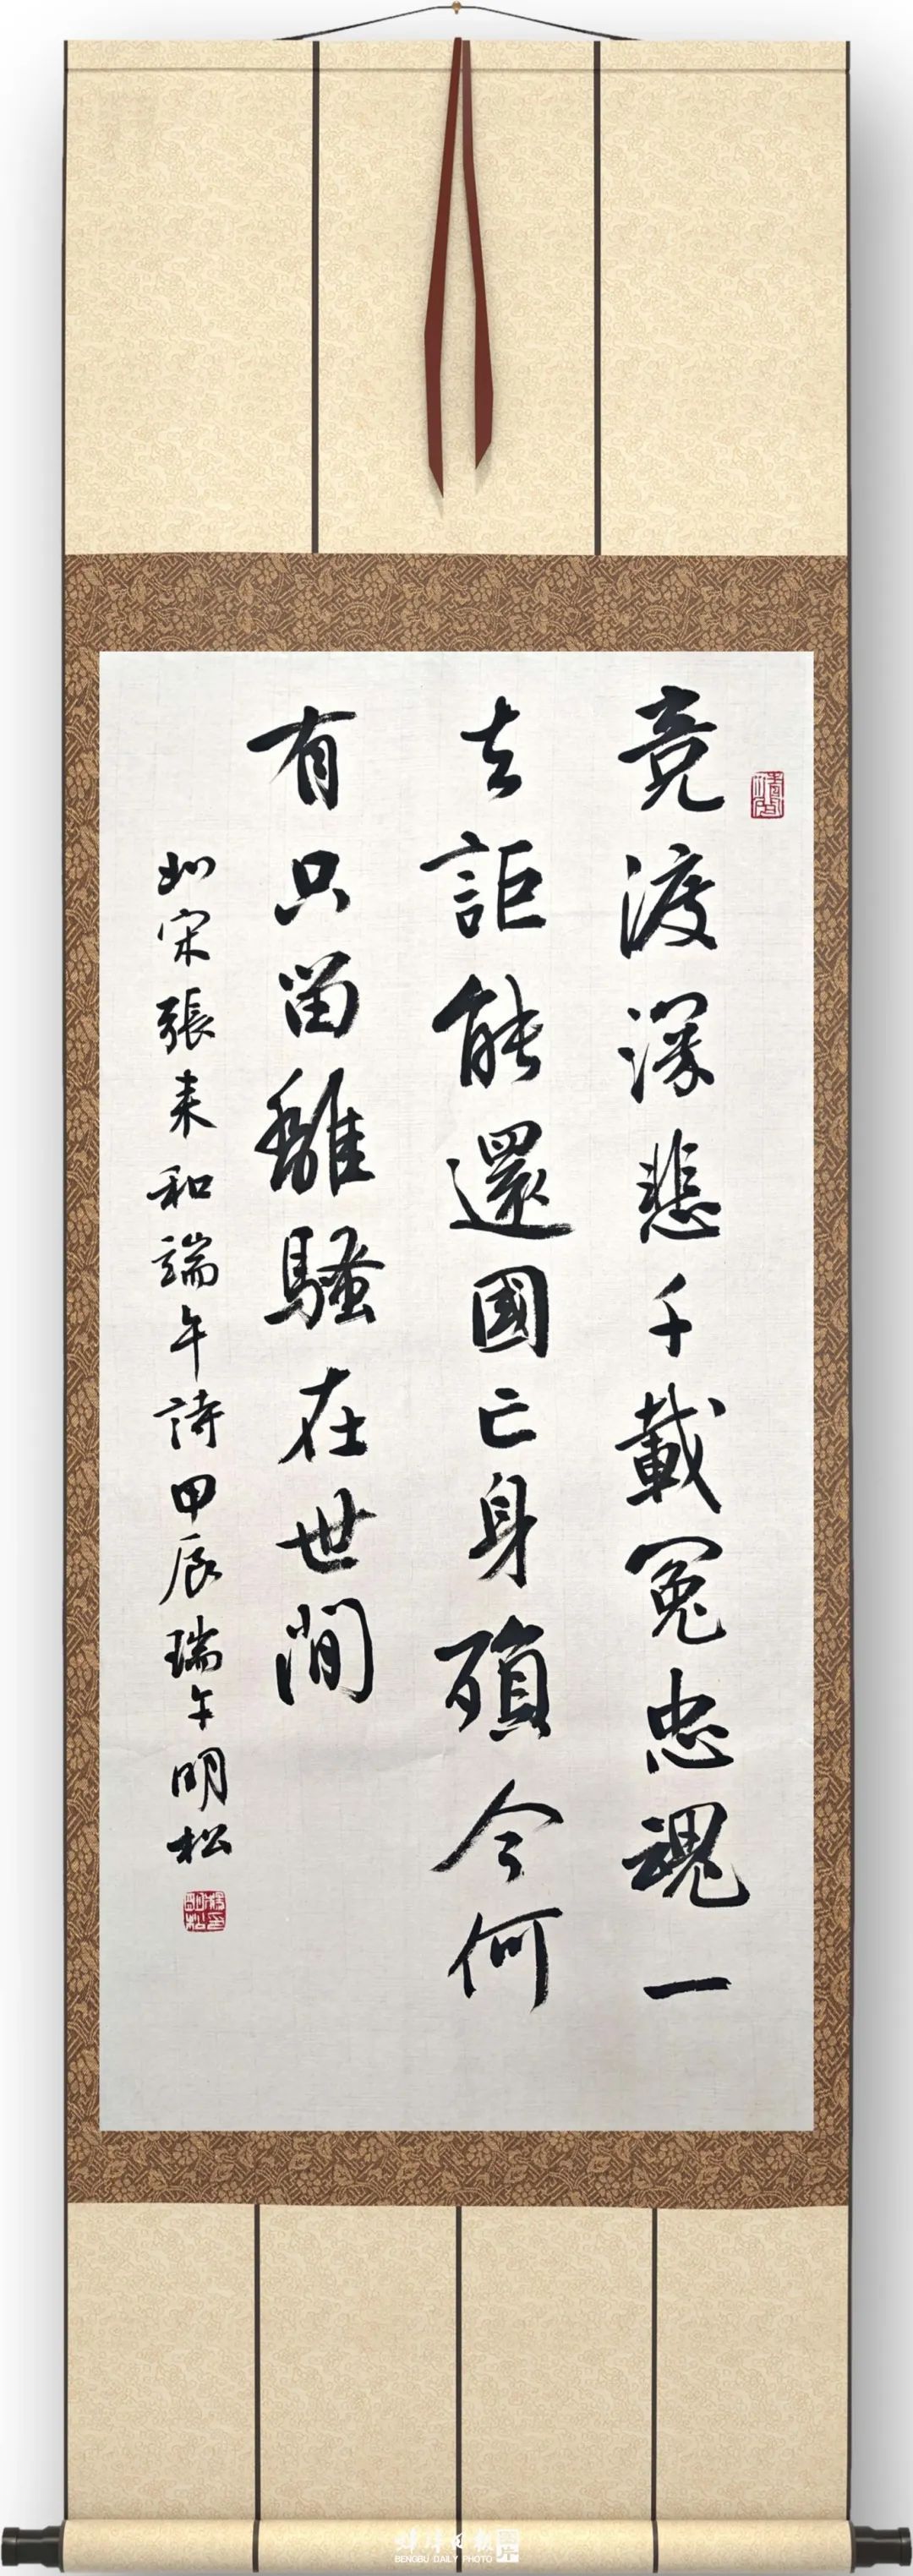 竞渡深悲千載冤忠魂一
去詎能還國亡身殞今何
有只留離騷在世間
北宋張耒和端午詩甲辰瑞午明松
蚌埠日报 图片
BENGBU DAILY PHOTO